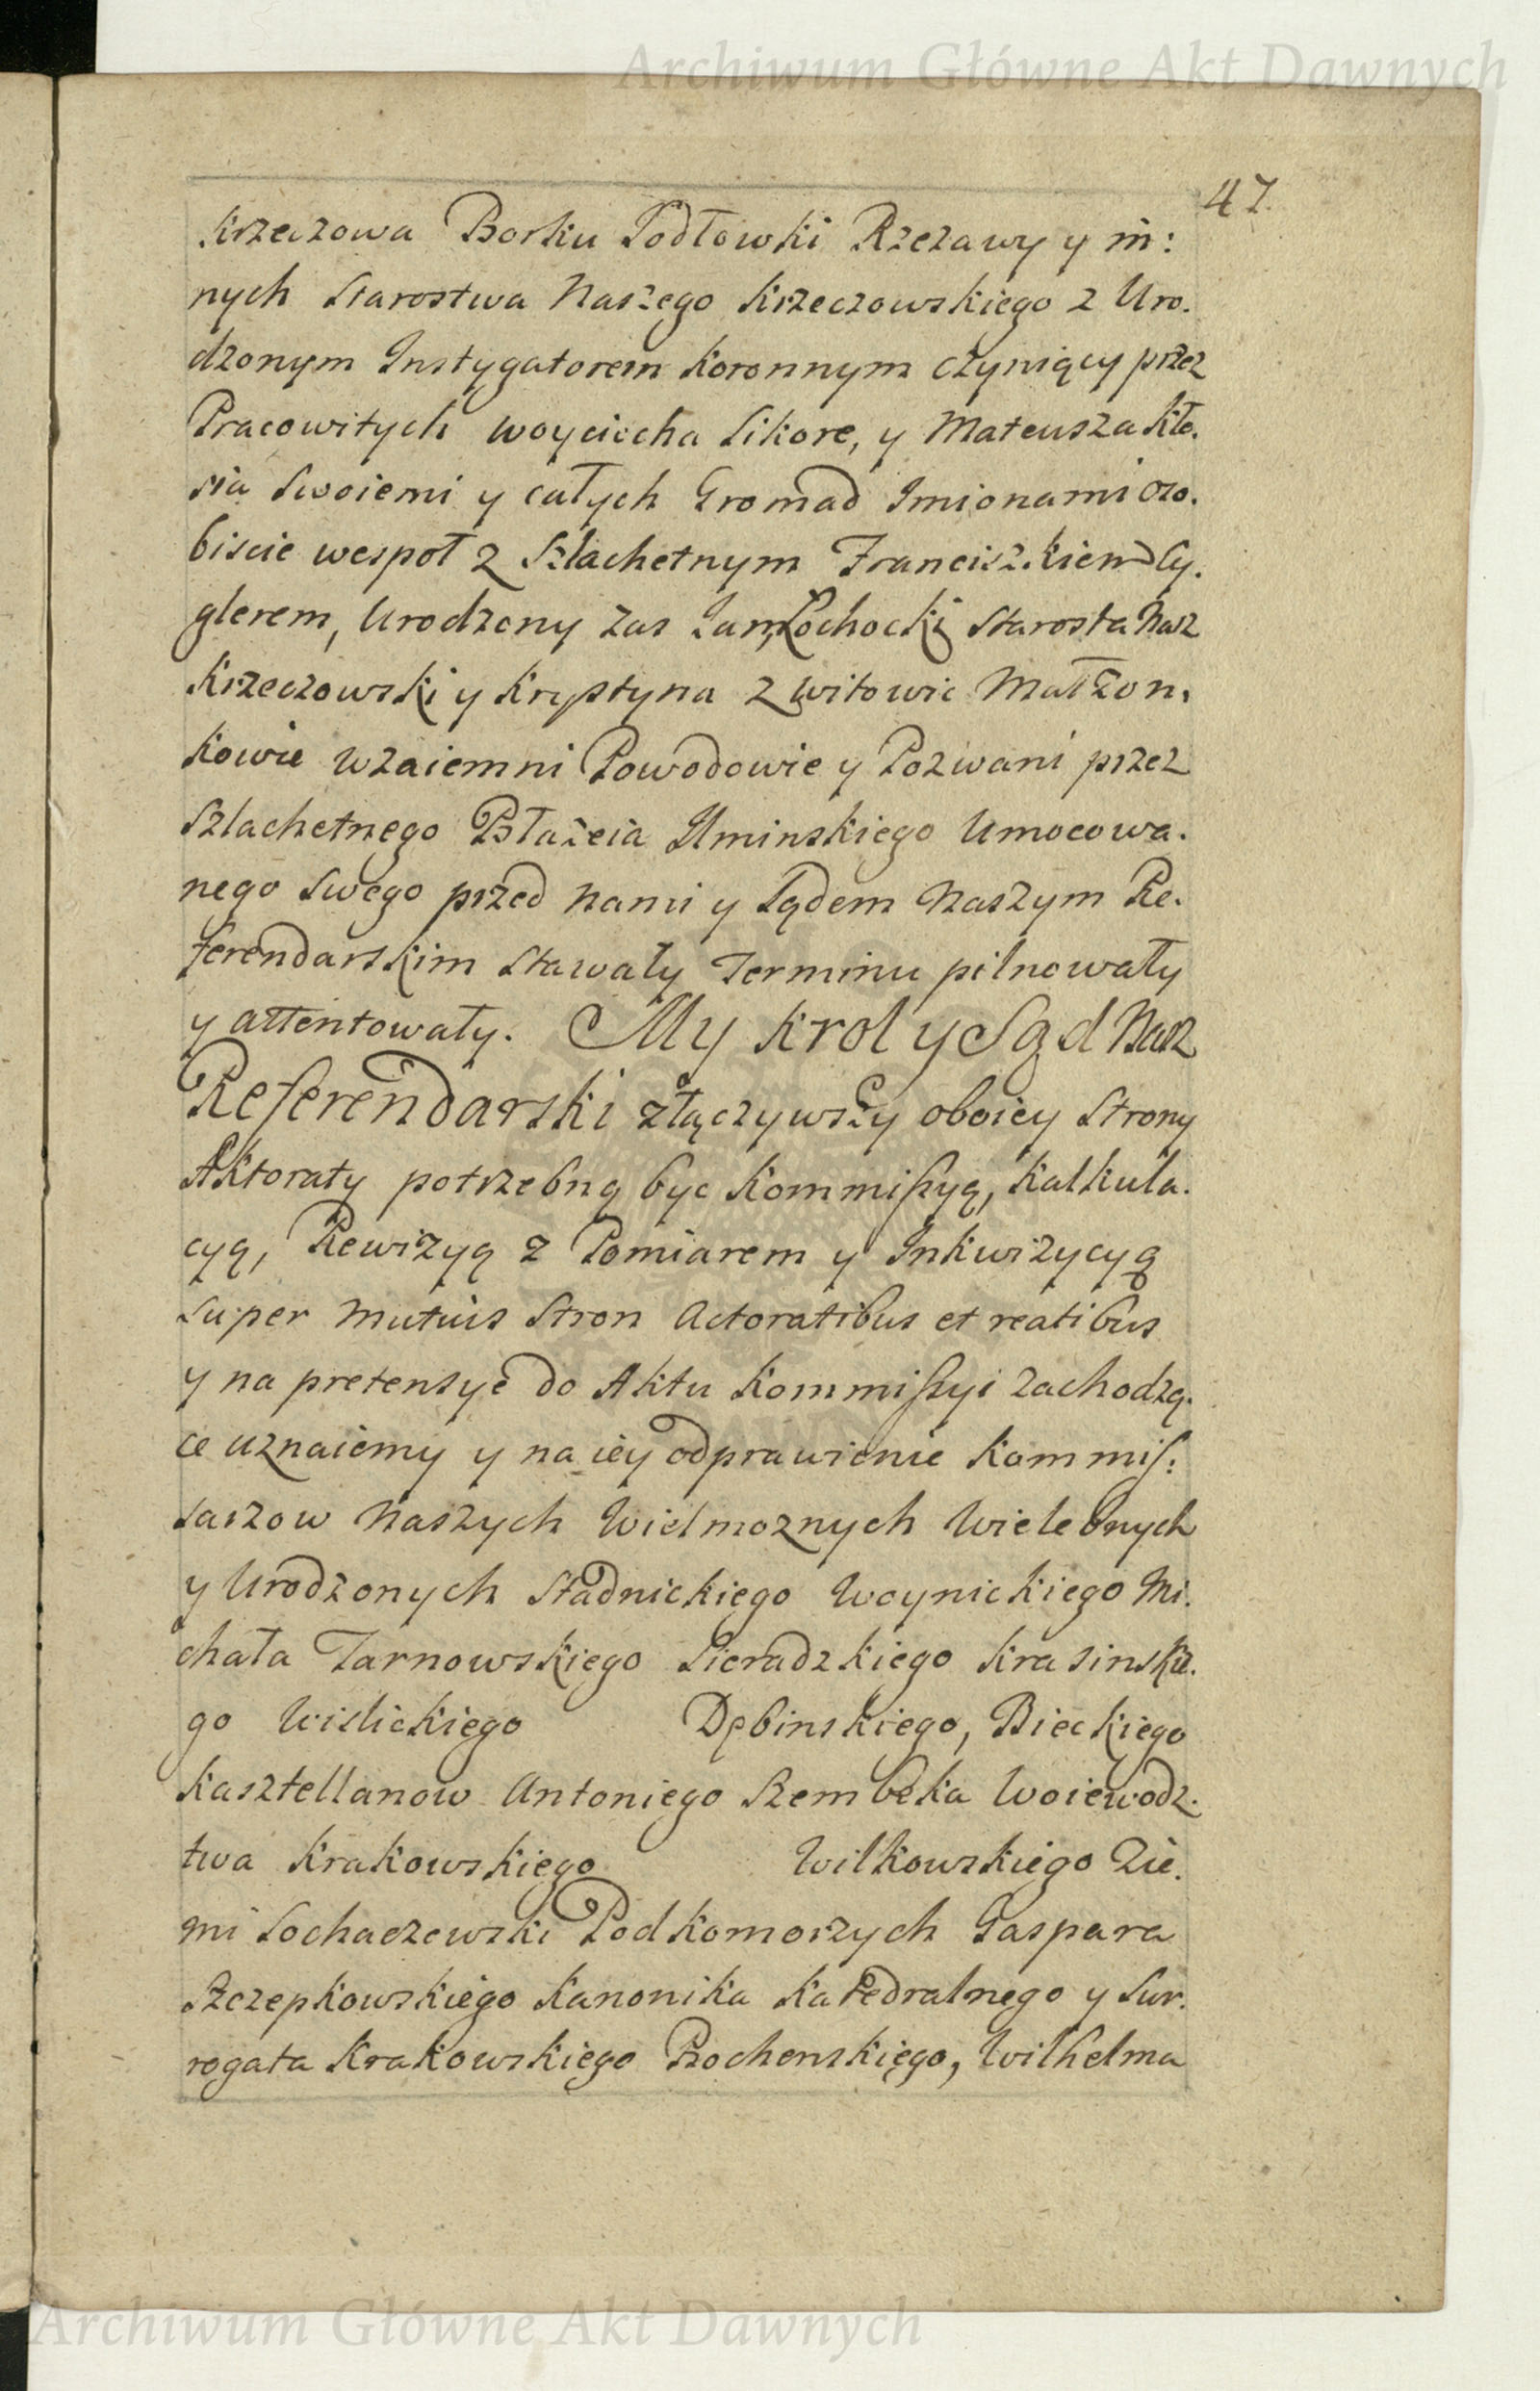 Archiwum Główne Akt Dawnych
47.
Krzeczowa Borku Jodłowki Rzezawy y in:
nych Starostwa Naszego Krzeczowskiego z Uro.
dzonym Instygatorem Koronnym czyniący przez
Pracowitych Woyciecha Sikore, y Mateusza Kło.
sia Swoiemi y całych Gromad Imionami oso.
biscie wespoł z Szlachetnym Franciszkiem Cy.
glerem, Urodzony zas Jan Łochocki Starosta Nasz
Krzeczowski y Krystyna z Witowic Małżon.
kowie wzaiemni Powodowie y Pozwani przez
Szlachetnego Błażeia Uminskiego Umocowa.
nego Swego przed Nami y Sądem Naszym Re.
ferendarskim Stawały Terminu pilnowały
y attentowały. My Krol y Sąd Nasz
Referendarski złączywszy oboiey Strony
Aktoraty potrzebną byc Kommissyą, Kalkula.
cyą, Rewizyą z Pomiarem y Inkwizycyą
Super Mutuis Stron Actoratibus et reatibus
y na pretensye do Aktu Kommissyi zachodzą.
ce uznaiemy y na iey odprawienie Kommis:
sarzow Naszych Wielmoznych Wielebnych
y Urodzonych Stadnickiego Woynickiego Mi.
chała Tarnowskiego Sieradzkiego Krasinskie.
go Wislickiego Dębinskiego, Bieckiego
Kasztellanow Antoniego Szembeka Woiewodz.
twa Krakowskiego Wilkowskiego Zie.
mi Sochaczewski Podkomorzych Gaspara
Szczepkowskiego Kanonika Katedralnego y Sur.
rogata Krakowskiego Bochenskiego, Wilhelma
Archiwum Główne Akt Dawnych